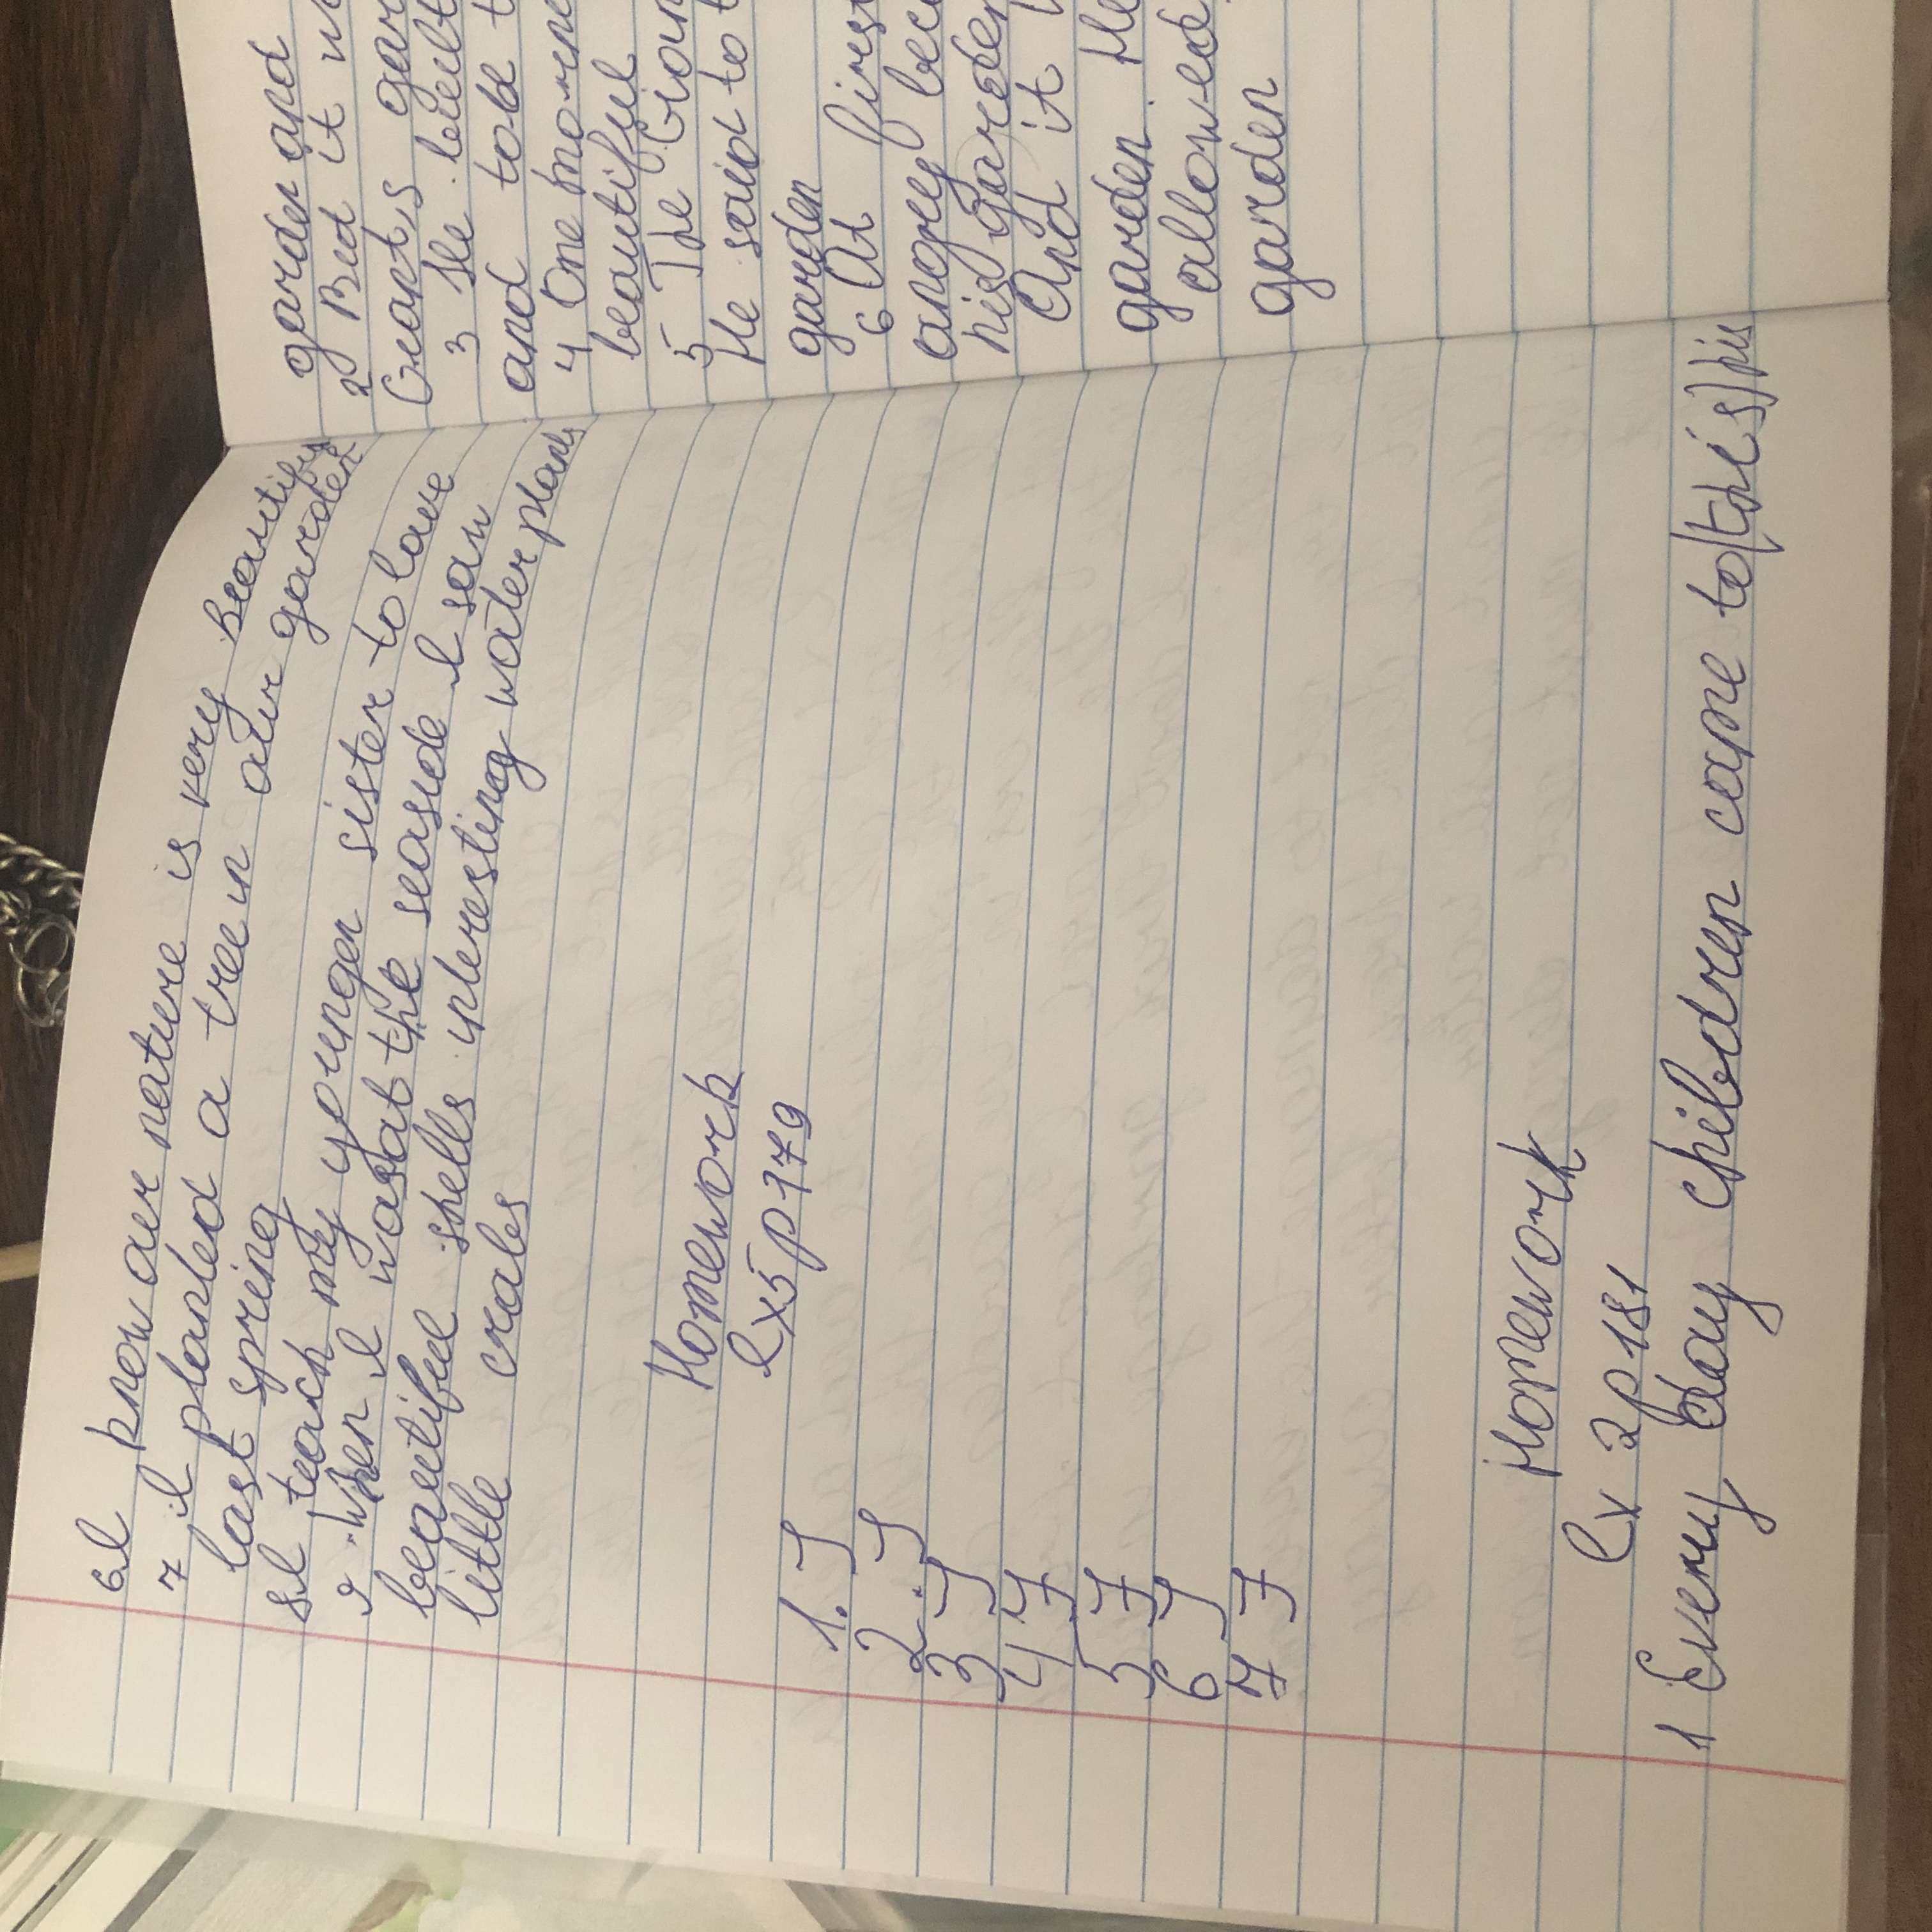 6 I know our nature is very beautify
7 I planted a tree in our garden
last spring
8 I teach my younger sister to love
9 When I was at the seaside I saw
beautiful shells interesting water plants
little crabs
Homework
Ex5p179
1. J
2. J
3 J
4 F
5 F
6 J
7 F
Homework
Ex 2p181
1 Every day children came to (this) his
garden and
2 But it w
Geants gar
3 He built
and told t
4 One morn
beautiful
5 The Gian
He said to t
garden
6 At first
angry bec
his garden
And it
garden. He
allowed
garden